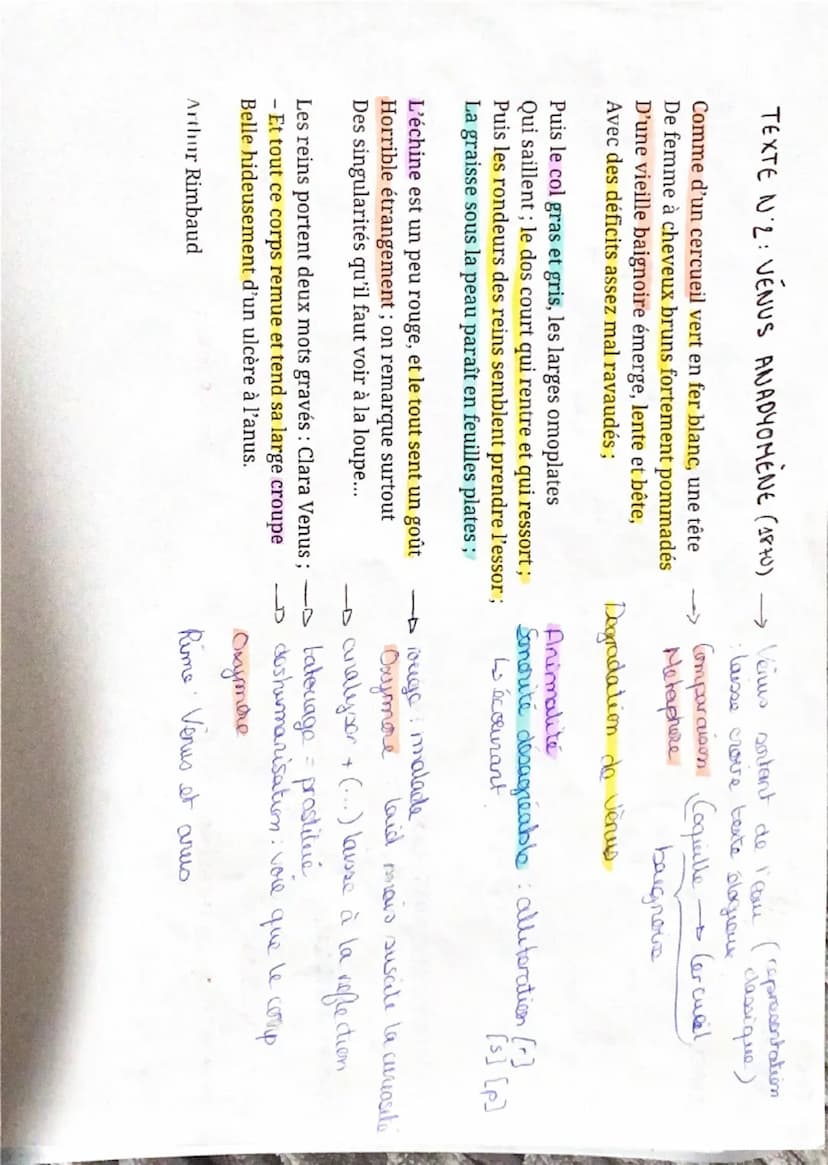 TEXTE N°2 : VÉNUS ANADYOMÈNE (1870) → Vénus sortant de l'eau (représentation classique)
: laisse croire texte élogieux
Comme d'un cercueil vert en fer blanc, une tête → Comparaison
De femme à cheveux bruns fortement pommadés Métaphore
Coquille → Cercueil
baignoire
D'une vieille baignoire émerge, lente et bête,
Avec des déficits assez mal ravaudés ; Dégradation de Vénus
Puis le col gras et gris, les larges omoplates Animalité
Qui saillent ; le dos court qui rentre et qui ressort ; Sonorité désagréable : allitération [r]
[s] [p]
Puis les rondeurs des reins semblent prendre l'essor ; ↳ écœurant
La graisse sous la peau paraît en feuilles plates ;
L'échine est un peu rouge, et le tout sent un goût → rouge : malade
Horrible étrangement ; on remarque surtout Oxymore : laid mais suscite la curiosité
Des singularités qu'il faut voir à la loupe... → analyser + (...) laisse à la reflection
Les reins portent deux mots gravés : Clara Venus ; → tatouage = prostitué
– Et tout ce corps remue et tend sa large croupe → deshumanisation : voie que le corp
Belle hideusement d'un ulcère à l'anus. Oxymore
Arthur Rimbaud Rime : Vénus et anus